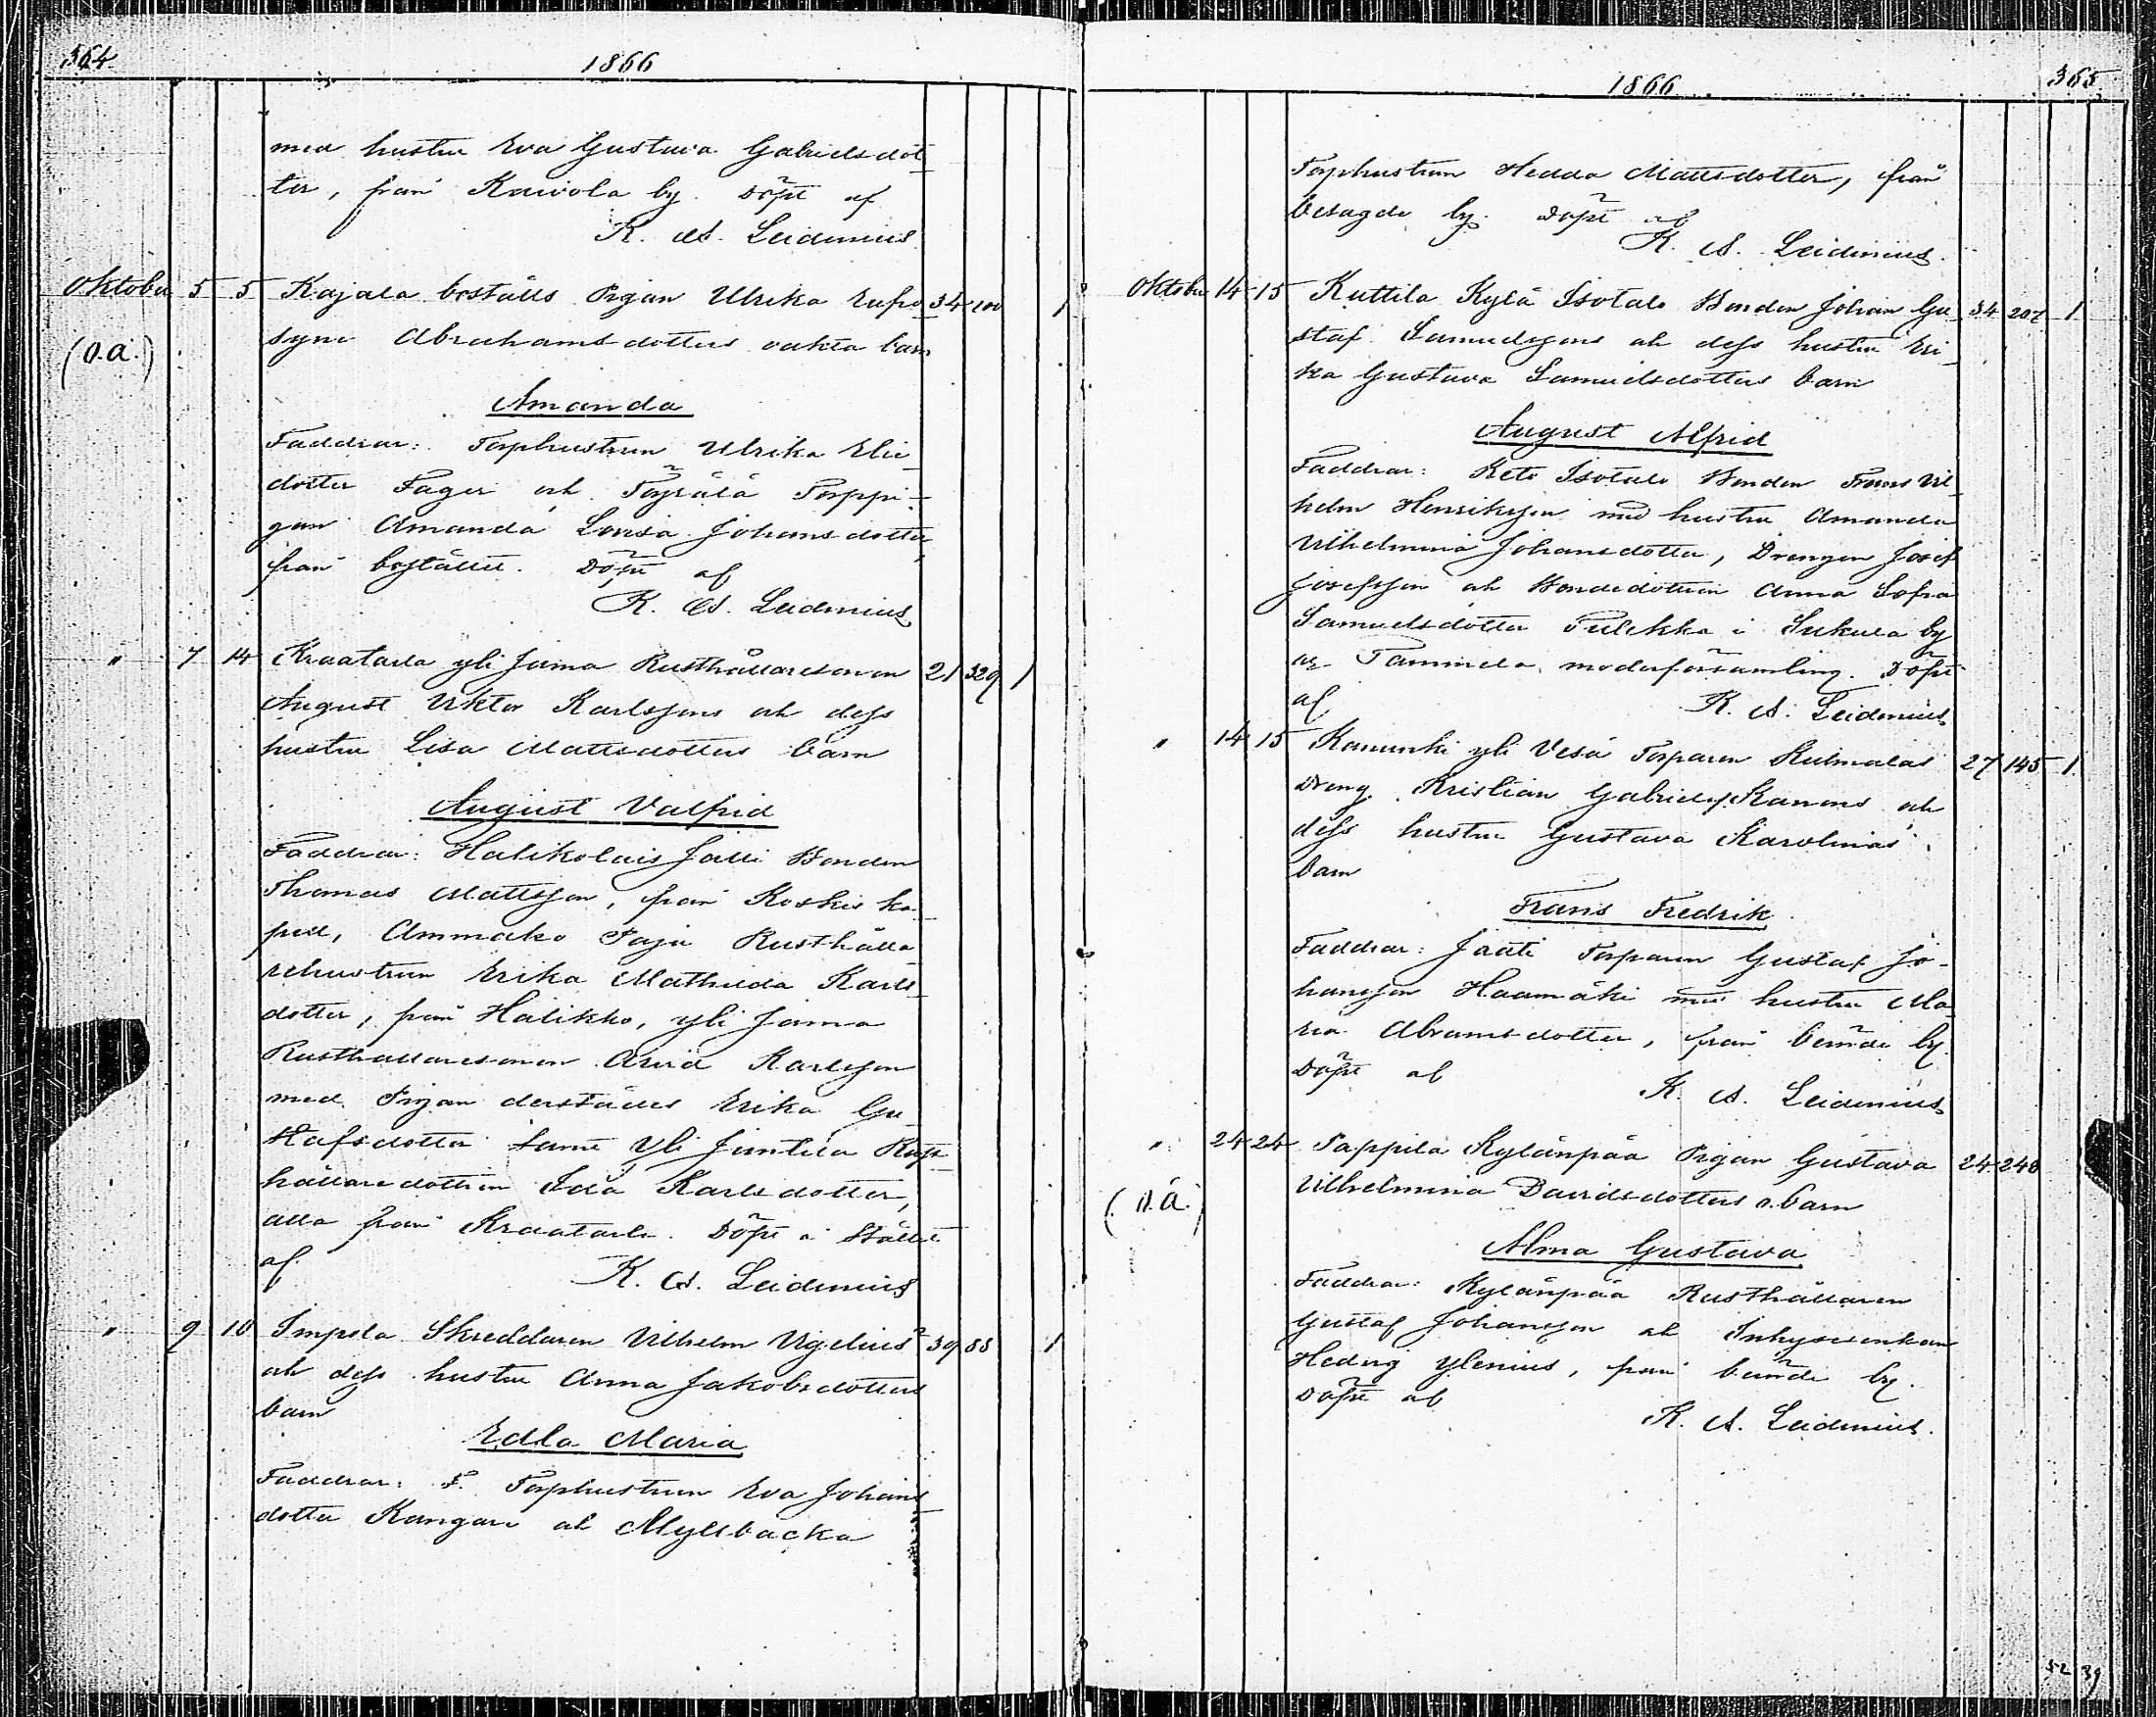 364
1866
med hustru Eva Gustava Gabrielsdot
ter, från Kaivola by. Döpt af
K. A. Leidenius
Oktober 5 5 Kajala boställs Pigan Ulrika Eufro 34 100 1
(o.a.) syne Abrahamsdotters oäkta barn
Amanda
Faddrar: Torphustrun Ulrika Elie
dotter Fager och Töyrälä Torppi-
gan Amanda Lovisa Johansdotter,
från bostället. Döpt af
K. A. Leidenius
" 7 14 Kraatarla yli Jama Rusthållaresonen 21 329 1
August Viktor Karlssons och dess
hustru Lisa Mattsdotters barn
August Valfrid
Faddrar: Halikolais Jalli Bonden
Thomas Mattsson, från Koskis ka
pell, Ammako Paju Rusthålla
rehustrun Erika Mathilda Karls
dotter, från Halikko, yli Jama
Rusthållaresonen Arvid Karlsson
med Pigan derstädes Erika Gu
stafsdotter samt Yli Juntila Rust
hållaredottren Ida Karlsdotter,
alla från Kraatarla. Döpt i Stället
af K. A. Leidenius
" 9 10 Impola Skreddaren Vilhelm Vigelius 39 88 1
och dess hustru Anna Jakobsdotters
barn
Edla Maria
Faddrar: F. Torphustrun Eva Johans
dotter Kangari och Myllbacka
365
1866
Torphustrun Hedda Mattsdotter, från
besagde by. Döpt af
K. A. Leidenius.
Oktober 14 15 Kuttila Kylä Isotalo Bonden Johan Gu 34 207 1
staf Samuelssons och dess hustru Eri
ka Gustava Samuelsdotters barn
August Alfrid
Faddrar: Keto Isotalo Bonden Frans Vil
helm Henriksson med hustru Amanda
Vilhelmina Johansdotter, Drengen Josef
Josefsson och Bondedottren Anna Sofia
Samuelsdotter Pulekka i Sukula by
ar Tammela moderförsamling. Döpt
af K. A. Leidenius
" 14 15 Kanunki yli Vesa Torparen Kulmalas 27 145 1.
Dreng Kristian Gabrielss Kanons och
dess hustru Gustava Karolinas
barn
Frans Fredrik
Faddrar: Jaati Torparen Gustaf Jo-
hansson Haamäki med hustru Ma
ria Abramsdotter, från berörde by.
Döpt af K. A. Leidenius
" 24 24 Pappila Kylänpää Pigan Gustava 24 248
(o.ä.) Vilhelmina Davidsdotters o. barn
Alma Gustava
Faddrar: Kylänpää Rusthållaren
Gustaf Johansson och Inhysesenkan
Hedvig Ylenius, från berörde by.
Döpt af
K. A. Leidenius.
52 39